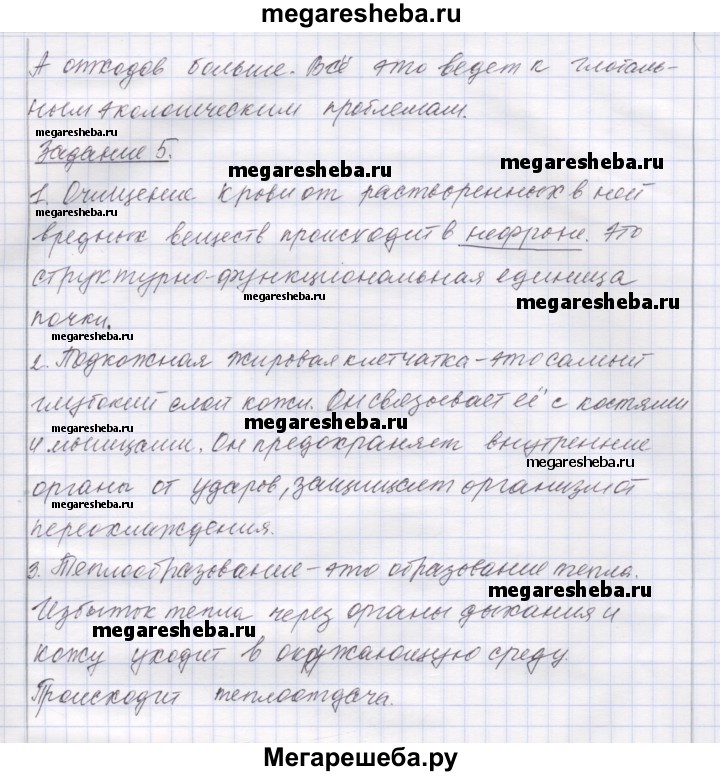 megaresheba.ru
А отходов больше. Всё это ведет к глобаль-
ным экологическим проблемам.
megaresheba.ru
Задание 5.
megaresheba.ru
1. Очищение крови от растворенных в ней
megaresheba.ru
вредных веществ происходит в нефроне. Это
структурно-функциональная единица
megaresheba.ru
megaresheba.ru
почки.
megaresheba.ru
2. Подкожная жировая клетчатка - это самый
глубокий слой кожи. Он связывает её с костями
megaresheba.ru
и мышцами. Он предохраняет внутренние
megaresheba.ru
органы от ударов, защищает организм от
переохлаждения.
3. Теплообразование - это образование тепла.
megaresheba.ru
Избыток тепла через органы дыхания и
megaresheba.ru
кожу уходит в окружающую среду.
Происходит теплоотдача.
Мегарешеба.ру